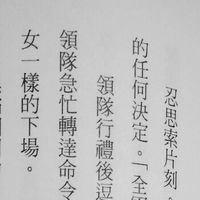 忍思索片刻
的任何決定。「全
領隊行禮後逗
領隊急忙轉達命令
女一樣的下場。